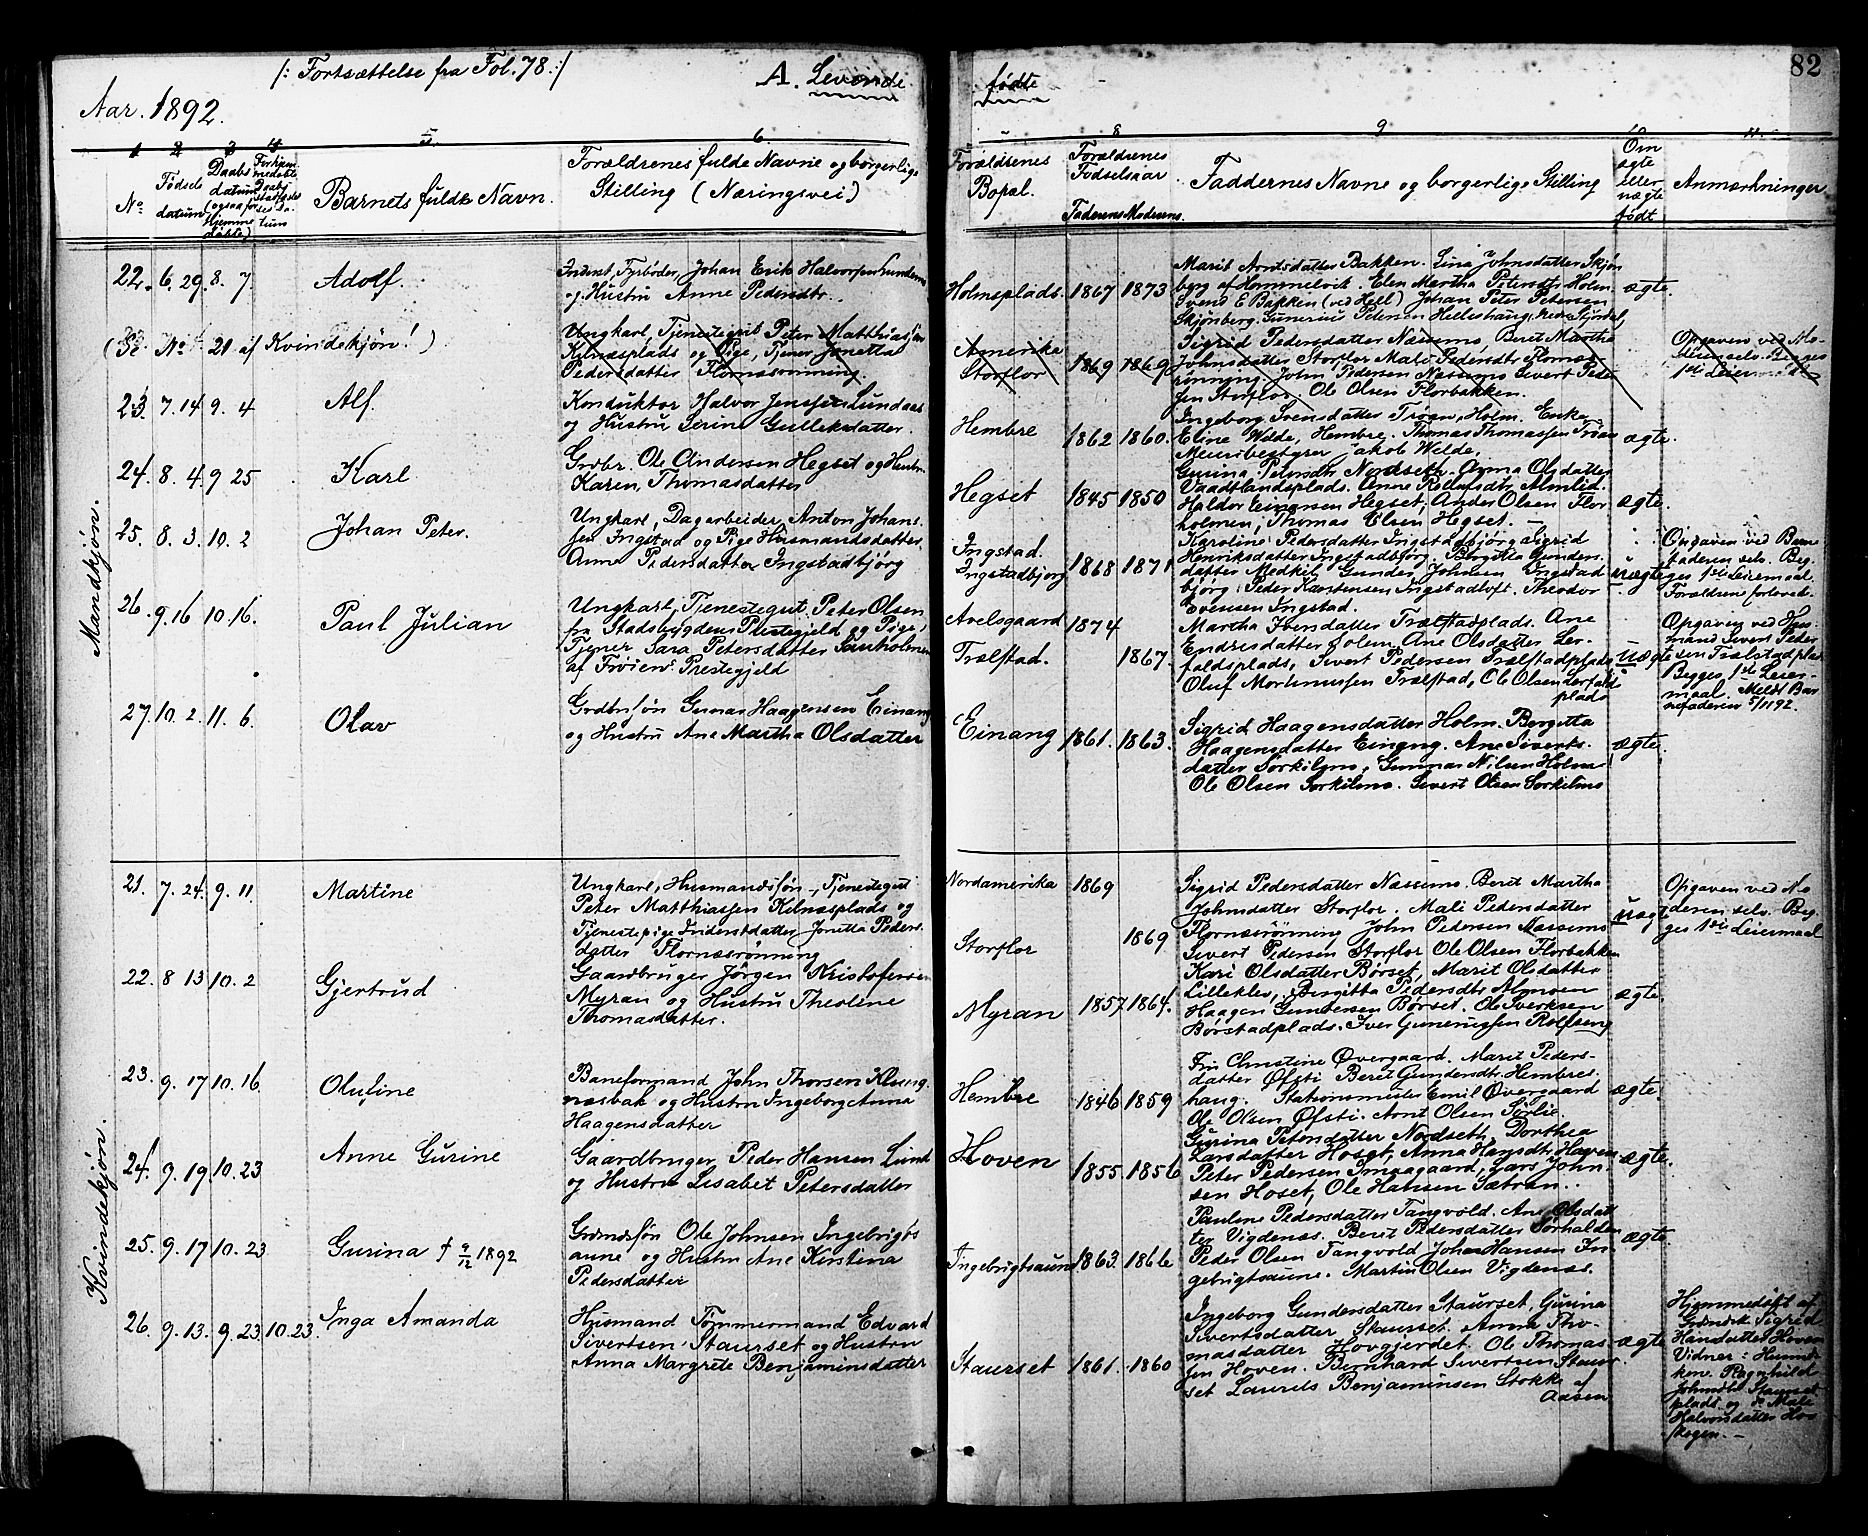 /: Fortsættelse fra Fol. 78. :/
A. Levende
fødte
82
Aar. 1892.
1 2 3 4 5. 6. 8 9 10 11.
No
Fødsels
datum
Daabs
datum
(ogsaa for
Hjemme
døbte)
Barnets fulde Navn.
Forældrenes fulde Navne og borgerlige
Stilling (Næringsvei)
Forældrenes
Bopæl.
Forældrenes
Fødselsaar
Faderens Moderens
Faddernes Navne og borgerlige Stilling
Om
ægte
eller
uægte
født
Anmærkninger
Mandkjøn.
22. 6. 29. 8. 7
Adolf
Inderst, Fyrbøder, Johan Erik Halvorsen
og Hustru Anne Pedersdtr.
Holmsplads. 1867 1873
Marit Arntsdatter Bakken. Lina Johnsdatter Skjøn
berg af Hommelvik. Elen Martha Petersdtr Holm.
Svend E Bakken (ved Hell) Johan Peter Petersen
Skjønberg. Gunerius Pedersen Hilleshaug, Nedre Stjørdal,
ægte.
(Se No 21 af Kvindekjøn!)
Ungkarl, Tjenestegut Peter Matthiassen
Kilnæsplads og Pige, Tjener Jonetta
Pedersdatter Flornæsrønning.
Amerika
Storflor
1869 1869
Sigrid Pedersdatter Næssmo. Berit Martha
Johnsdatter Storflor Mali Pedersdtr Flornæs-
rønning. John Pedersen Næssmo Sivert Peder
sen Storflor. Ole Olsen Florbakken.
Opgaven ved Mo-
deren selv. Begges
1ste Leiermaal
23. 7. 14 9. 4
Alf.
Konduktør Halvor Jenssen Lundaas
og Hustru Serine Gulleksdatter.
Hembre 1862 1860.
Ingeborg Svensdatter Trøan, Holm. Enke
Eline Welde, Hembre. Thomas Thomassen Trøan
Meieribestyrer Jakob Welde.
ægte.
24. 8. 4. 9 25
Karl
Grdbr. Ole Andersen Hegset og Hustru
Karen Thomasdatter
Hegset 1845 1850
Gurina Petersdtr Nordseth. Anna Olsdatter
Vaadtlandsplads. Anne Rollefsdtr Almlid.
Haldor Einersen Hegset, Anders Olsen Flor
holmen, Thomas Elsen Hegset. —
ægte.
25. 8. 3. 10. 2
Johan Peter.
Ungkarl, Dagarbeider Anton Johans-
sen Ingstad og Pige Husmandsdatter
Anne Pedersdatter Ingstadbjørg
Ingstad.
Ingstadbjørg 1868 1871
Karoline Pedersdatter Ingstadbjørg Sigrid
Henriksdatter Ingstadbjørg. Bergitta Gunders-
datter Medkil, Gunder Johnsen Ingstad
bjørg. Peder Karstensen Ingstadloft. Theodor
Evensen Ingstad.
uægte
Opgaven ved Barne
faderen selv. Beg-
ges 1ste Leiermaal.
Forældrene forlovede.
26. 9. 16 10. 16.
Paul Julian
Ungkarl, Tjenestegut, Peter Olsen
fra Stadsbygdens Prestegjeld og Pige,
Tjener Sara Petersdatter
af Frøiens Prestegjeld
Avelsgaard 1874
Trælstad. 1867.
Martha Ibersdatter Trælstadplads. Ane
Endresdatter Solem, Ane Olsdatter Ler-
faldsplads, Sivert Pedersen Trælstadplads
Oluf Mortinussen Trælstad, Ole Olsen Lerfald
plads
Uægte
Opgaven ved Hus
mand Sivert Peder
sen Trælstadplads
Begges 1ste Leier-
maal. Meldt Bar
nefaderen 5/11 92.
27. 10. 2. 11. 6.
Olav
Grdbrsøn Gunnar Haagensen Einang
og Hustru Ane Martha Olsdatter
Einang 1861. 1863.
Sigrid Haagensdatter Holm. Bergitta
Haagensdatter Einang. Ane Siverts-
datter Sørkilmo, Gunnar Nilsen Holm
Ole Olsen Sørkilmo. Sivert Olsen Sørkilmo
ægte
Kvindekjøn.
21. 7. 24. 9. 11
Martine
Ungkarl, Husmandssøn, Tjenestegut
Peter Matthiassen Kilnæsplads og
Tjenestepige Inderstdatter Jonetta Peders-
datter Flornæsrønning
Nordamerika 1869
Storflor 1869
Sigrid Pedersdatter Næssmo. Berit Martha
Johnsdatter Storflor. Mali Pedersdatter
Flornæsrønning John Pedersen Næssmo
Sivert Pedersen Storflor Ole Olsen Florbakken
uægte
Opgaven ved Mo
deren selv. Beg-
ges 1ste Leiermaal
22. 8 13 10. 2
Gjertrud
Gaardbruger Jørgen Kristofersen
Myran og Hustru Theoline
Thomasdatter.
Myran 1857 1864.
Kari Olsdatter Børset, Marit Olsdatter
Lilleklev, Birgitta Pedersdtr Almoen
Haagen Gundersen Børset. Ole Sverksen
Børstadplads. Iver Guneriussen Rolfseng
ægte
23. 9. 17 10. 16
Oluline
Baneformand John Thorsen Klung
næsbak og Hustru Ingeborg Anna
Haagensdatter
Hembre 1846 1859
Fru Christine Øvergaard. Marit Peders-
datter Øfsti Beret Gundersdt. Hembres-
haug. Stationsmester Emil Øvergaard
Ole Olsen Øfsti. Arnt Olsen Sørlie.
ægte
24. 9. 19 10. 23
Anne Gurine
Gaardbruger Peder Hansen Lund
og Hustru Lisabet Petersdatter
Hoven 1855. 1856
Gurina Petersdatter Nordseth, Dorthea
Larsdatter Hoset, Anna Hansdtr Hoven
Peter Pedersen Imsagaard, Lars John-
sen Hoset, Ole Hansen Sætran.
ægte.
25. 9. 17 10. 23
Gurina † 9/12 1892
Grdmdssøn Ole Johnsen Ingebrigts
aune og Hustru Ane Kirstina
Pedersdatter
Ingebrigtsaune 1863. 1866
Pauline Pedersdatter Tangvold. Ane Olsdat
ter Vigdenæs. Beret Pedersdatter Sørhalden
Peder Olsen Tangvold Johan Hansen In-
gebrigtsaune. Martin Olsen Vigdenæs.
ægte
26. 9. 13. 9. 23 10. 23.
Inga Amanda
Husmand Tømmermand Edvard
Sivertsen Staurset og Hustru
Anna Margrete Benjaminsdatter
Staurset 1861. 1860
Ingeborg Gundersdatter Staurset, Gurina
Sivertsdatter Staurset. Anna Tho-
masdatter Hovgjerdet. Ole Thomas-
sen Hoven. Bernhard Sivertsen Staur
set Laurets Benjaminsen Stokke af
Aasen
ægte
Hjemmedøbt af
Sigrid
Hansdatter Hoven
Vidner:
Ragnhild
Johnsdtr Staurset
plads og Mali
Halvorsdatter Hov
skogen. —